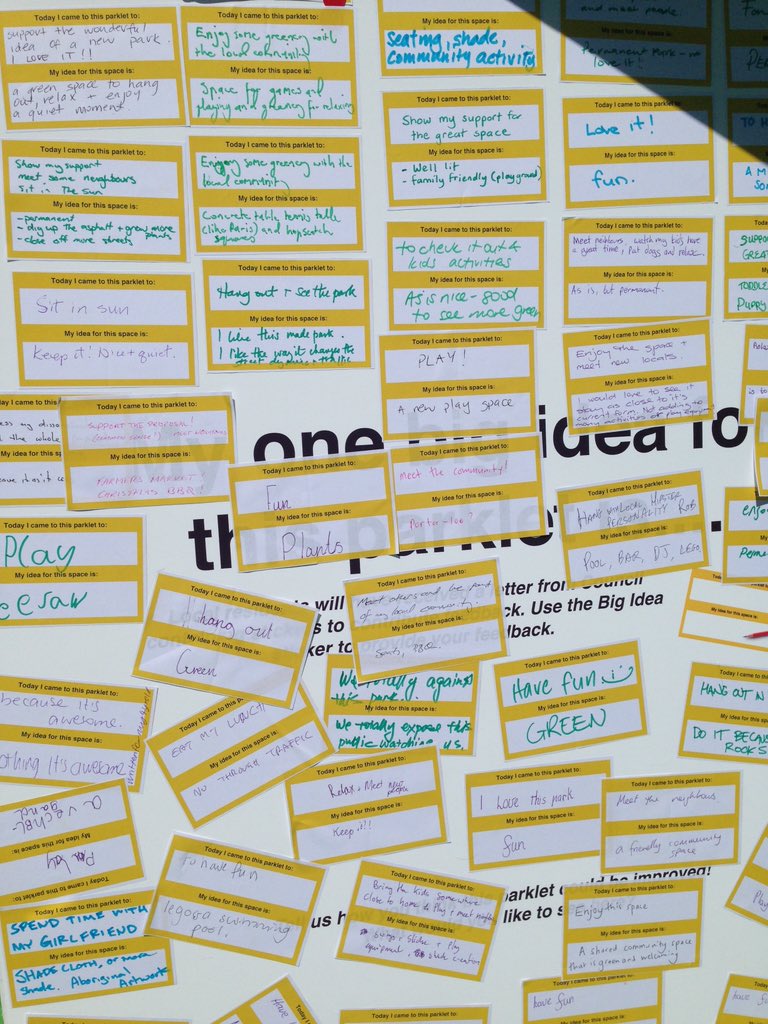 support the wonderful
idea of a new park.
I LOVE IT!!
My idea for this space is:
a green space to hang
out, relax + enjoy
a quiet moment.
Today I came to this parklet to:
Enjoy some greenery with
the local community
My idea for this space is:
Space for games and
playing and greenery for relaxing
My idea for this space is:
Seating, shade,
community activity
and meet people.
My idea for this space is:
Permanent Park -
love it!
Today I came to this parklet to:
Show my support for
the great space
My idea for this space is:
- Well lit
- family friendly (playground)
Today I came to this parklet to:
Love it!
My idea for this space is:
fun.
Today I came to this parklet to:
Show my support
meet some neighbours
sit in the sun
My idea for this space is:
- permanent
- dig up the asphalt + grow more
plants
- close off more streets
Today I came to this parklet to:
Enjoying some greenery with the
local community
My idea for this space is:
Concrete table tennis table
(like Paris) and hopscotch
squares
Today I came to this parklet to:
to check it out &
kids activities
My idea for this space is:
As is nice - good
to see more green
Today I came to this parklet to:
Meet neighbours, watch my kids have
a good time, Pat dogs and relax.
My idea for this space is:
As is, but permanent.
Today I came to this parklet to:
Sit in sun
My idea for this space is:
Keep it! Nice + quiet.
Today I came to this parklet to:
Hang out + see the park
My idea for this space is:
I like this made park.
I like the way it changes the
Today I came to this parklet to:
PLAY!
My idea for this space is:
A new play space
Today I came to this parklet to:
Enjoy the space +
meet new locals.
My idea for this space is:
I would love to see it
stay as close to it's
current form. Not adding too
many activities or play equipment
Today I came to this parklet to:
SUPPORT THE PROPOSAL!
My idea for this space is:
FARMERS MARKET
CHRISTMAS BBQ!
one big idea fo
this parklet
Today I came to this parklet to:
Fun
My idea for this space is:
Plants
Today I came to this parklet to:
Meet the community!
My idea for this space is:
Porta-loo?
Today I came to this parklet to:
My idea for this space is:
POOL, BAR, DJ, LEGO
Today I came to this parklet to:
Play
My idea for this space is:
eesaw
will
letter from Council
ck. Use the Big Idea
to provide your feedback.
Today I came to this parklet to:
hang out
My idea for this space is:
Green
Today I came to this parklet to:
Meet others and be part
of my local community
My idea for this space is:
Seats, BBQ.
We totally against
this park.
My idea for this space is:
We totally expose this
public watching us.
Today I came to this parklet to:
Have fun
My idea for this space is:
GREEN
Today I came to this parklet to:
HANG OUT IN
My idea for this space is:
DO IT BECAU
ROCKS
Today I came to this parklet to:
because it's
awesome.
My idea for this space is:
othing It's awesome
Today I came to this
EAT MY LUNCH
My idea for this space is:
NO THROUGH TRAFFIC
Today I came to this parklet to:
Relax + Meet new
people
My idea for this space is:
Keep it!!
Today I came to this parklet to:
I love this park
My idea for this space is:
fun
Today I came to this parklet to:
Meet the neighbours
My idea for this space is:
a friendly community
space
Today I came to this parklet to:
My idea for this space is:
Today I came to this parklet to:
to have fun
My idea for this space is:
lego and a swimming
pool!
parklet could be improved!
us how
like to s
Today I came to this parklet to:
Bring the kids somewhere
close to home to Play + meet
My idea for this space is:
Today I came to this parklet to:
Enjoy this space
My idea for this space is:
A shared community space
that is green and welcoming
Today I came to this parklet to:
SPEND TIME WITH
MY GIRLFRIEND
My idea for this space is:
SHADE CLOTH, or more
shade. Aboriginal Artwork
Today I came to this parklet to:
have fun
My idea for this space is:
Today I came to this parklet to:
Today I came to this parklet to: